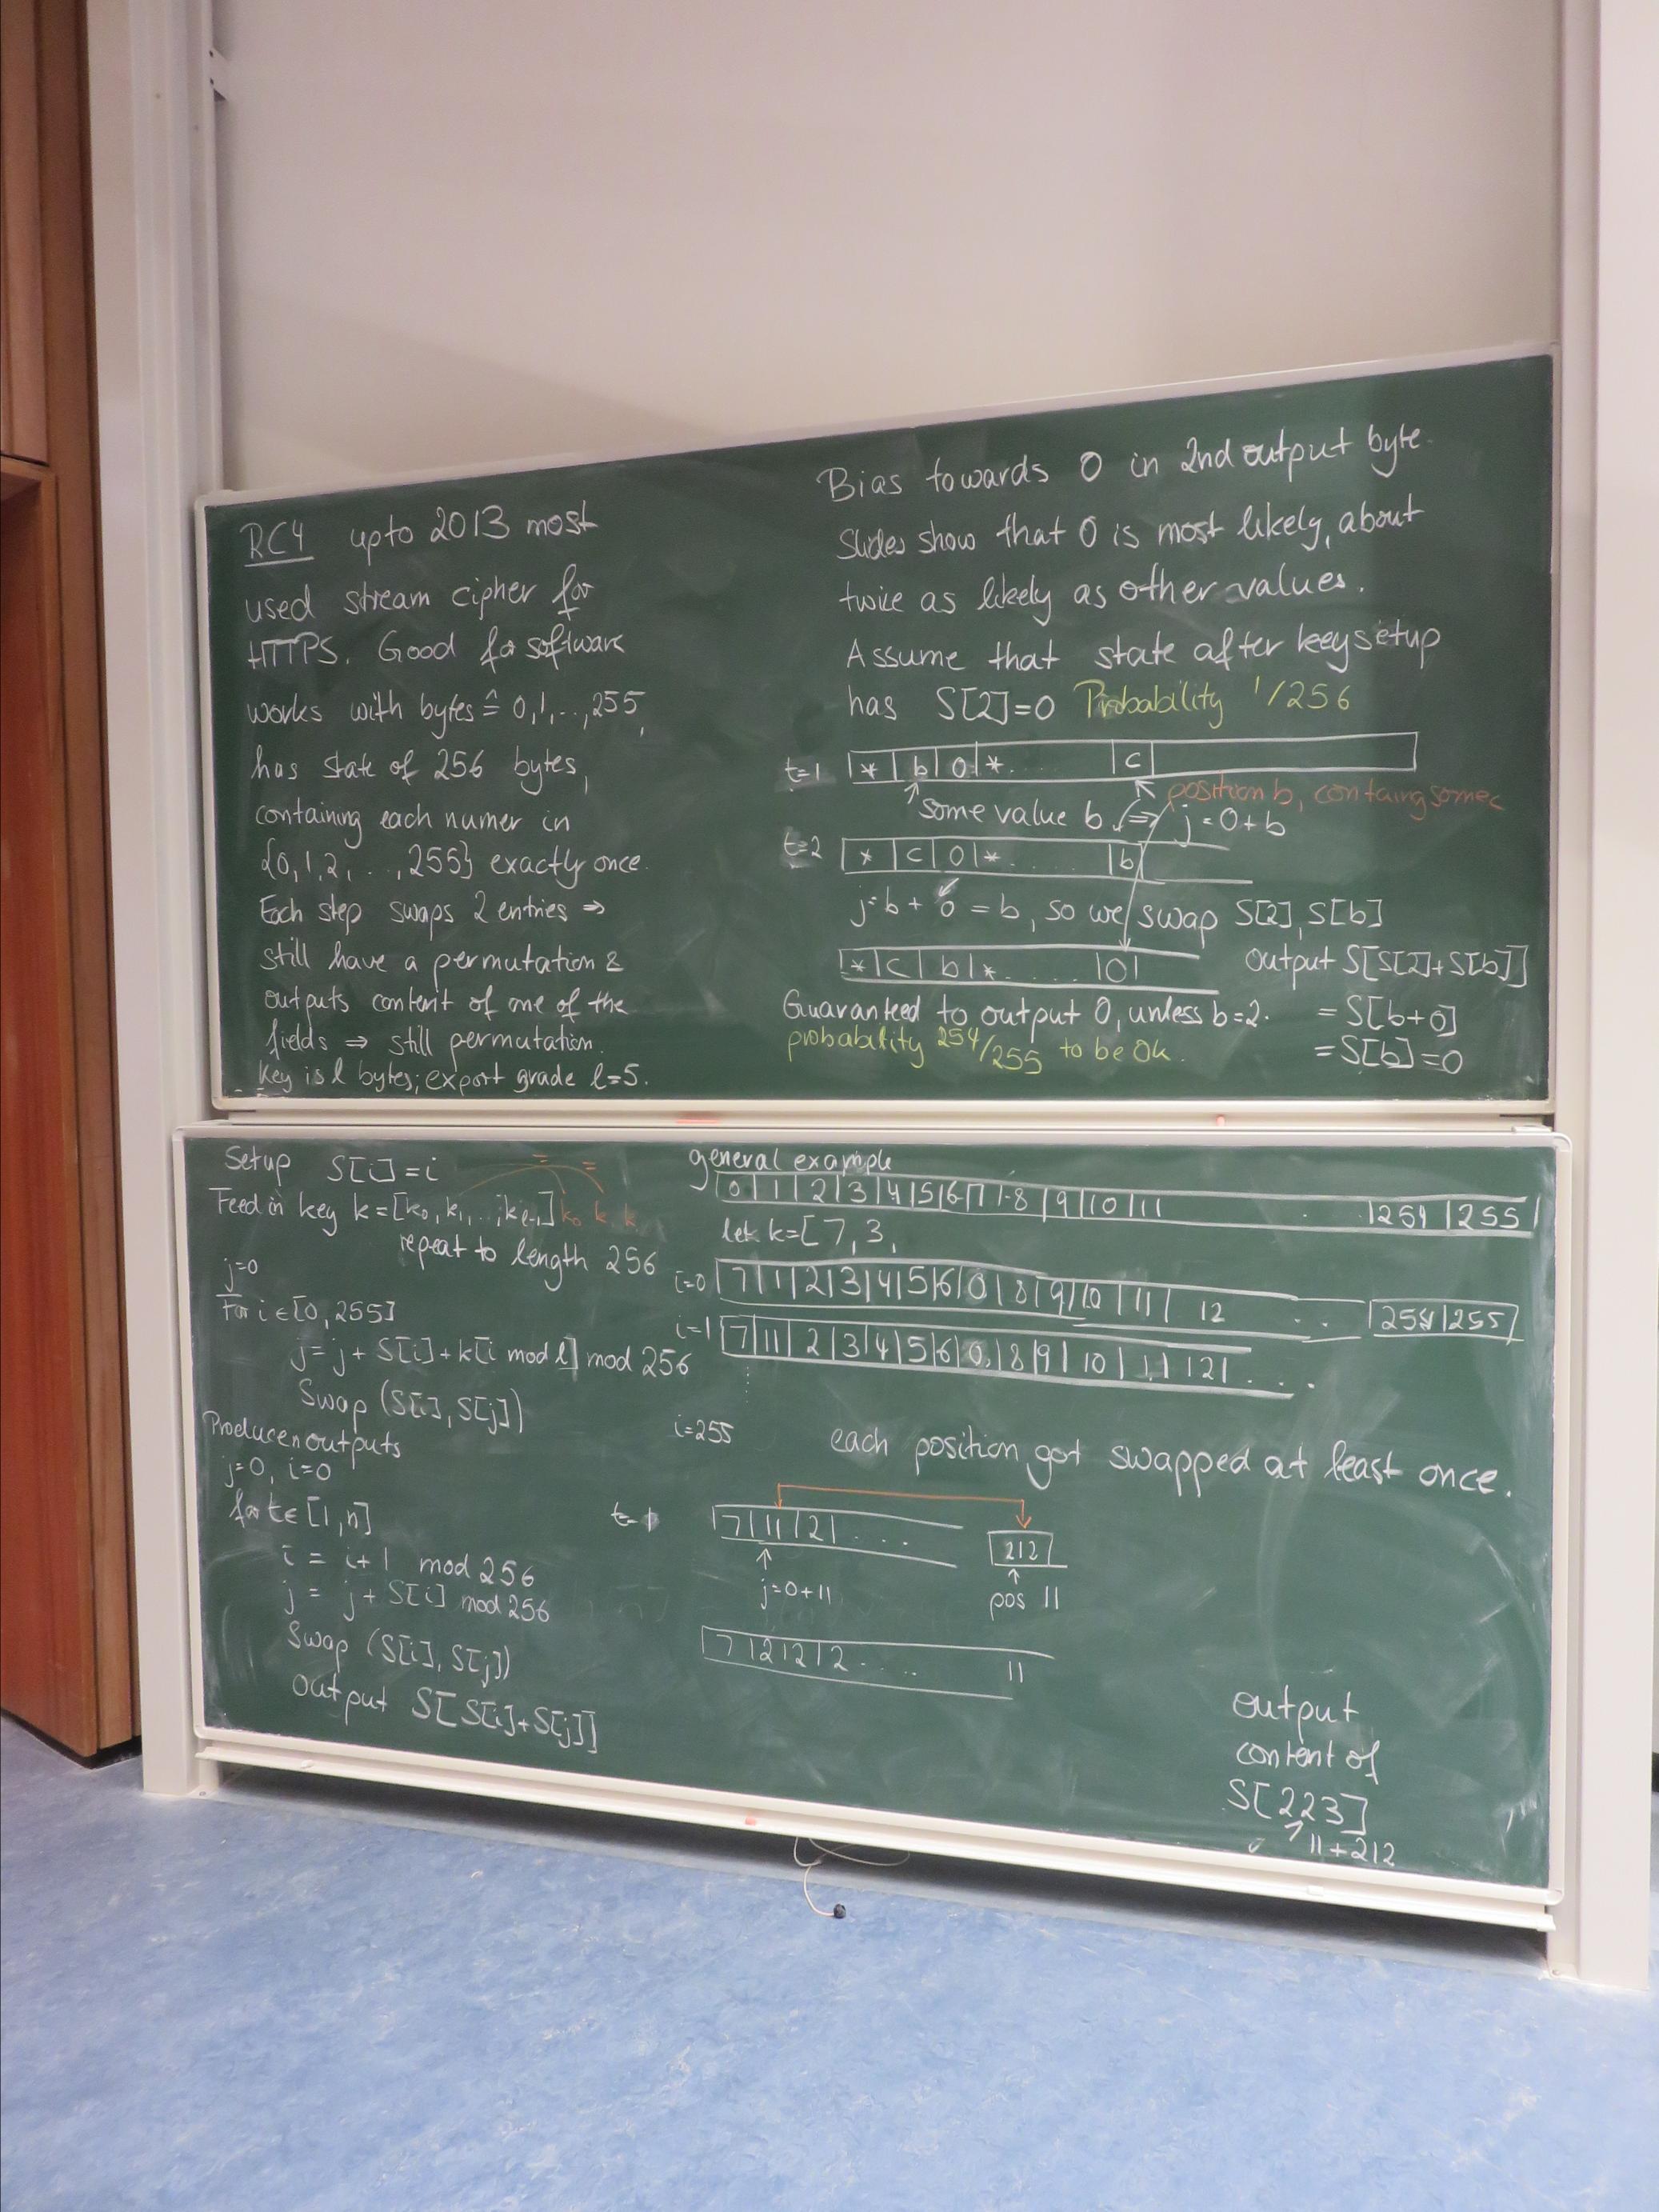 RC4 upto 2013 most
used stream cipher for
HTTPS. Good for software
works with bytes ≙ 0,1,..,255,
has state of 256 bytes,
containing each numer in
{0,1,2,..,255} exactly once.
Each step swaps 2 entries ⇒
still have a permutation &
outputs content of one of the
fields ⇒ still permutation.
Key is l bytes; export grade l=5.
Bias towards 0 in 2nd output byte.
Slides show that 0 is most likely, about
twice as likely as other values.
Assume that state after key setup
has S[2]=0 Probability 1/256
t=1 |*|b|0|*.... |c|
position b, containg some c
some value b ⇒ j=0+b
t=2 |*|c|0|*.... |b|
j=b+0=b, so we swap S[2], S[b]
|*|c|b|*..... |0|
output S[S[2]+S[b]]
Guaranteed to output 0, unless b=2.
= S[b+0]
probability 254/255 to be Ok.
= S[b]=0
Setup S[i]=i
Feed in key k=[k0,k1,..,kl-1] k0 k k
repeat to length 256
j=0
For i∈[0,255]
j=j+S[i]+k[i mod l] mod 256
Swap (S[i],S[j])
Produce n outputs
j=0, i=0
for t∈[1,n]
i = i+1 mod 256
j = j+S[i] mod 256
Swap (S[i],S[j])
output S[S[i]+S[j]]
general example
0|1|2|3|4|5|6|7|8|9|10|11 . . |254|255|
let k=[7,3,
i=0 |7|1|2|3|4|5|6|0|8|9|10|11| 12 .. |254|255|
i=1 |7|11|2|3|4|5|6|0|8|9|10|1|12|...
i=255 each position got swapped at least once.
t=1 |7|11|2|.... |212|
j=0+11 pos 11
|7|212|2.... 11
output
content of
S[223]
11+212